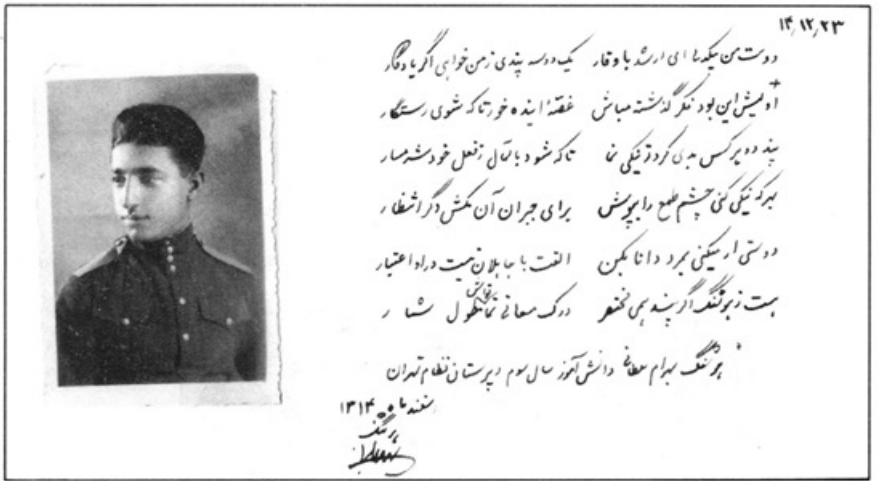 ۱۴٫۱۲٫۲۳
دوست من یکدلی ای ارشد با وقار یک دوسه پندی ز من خواهی اگر یادگار
اولیش این بود فکر گذشته مباش غصهٔ اینده خور تا که شوی رستگار
پند دو بر کس بدی کرد تو نیکی نما تا که شود بامآل ز فعل خود شرمسار
بهر که نیکی کنی چشم طمع را بپوش برای جبران آن مکش دگر انتظار
دوستی ار میکنی بمرد دانا بکن الفت با جاهلان نیست در او اعتبار
هست ز پرتنگ اگر پند همی مختصر درک معانی مطول شمار
بهرام دانش آموز سال سوم دبیرستان نظام تهران
اسفند ماه ۱۳۱۴